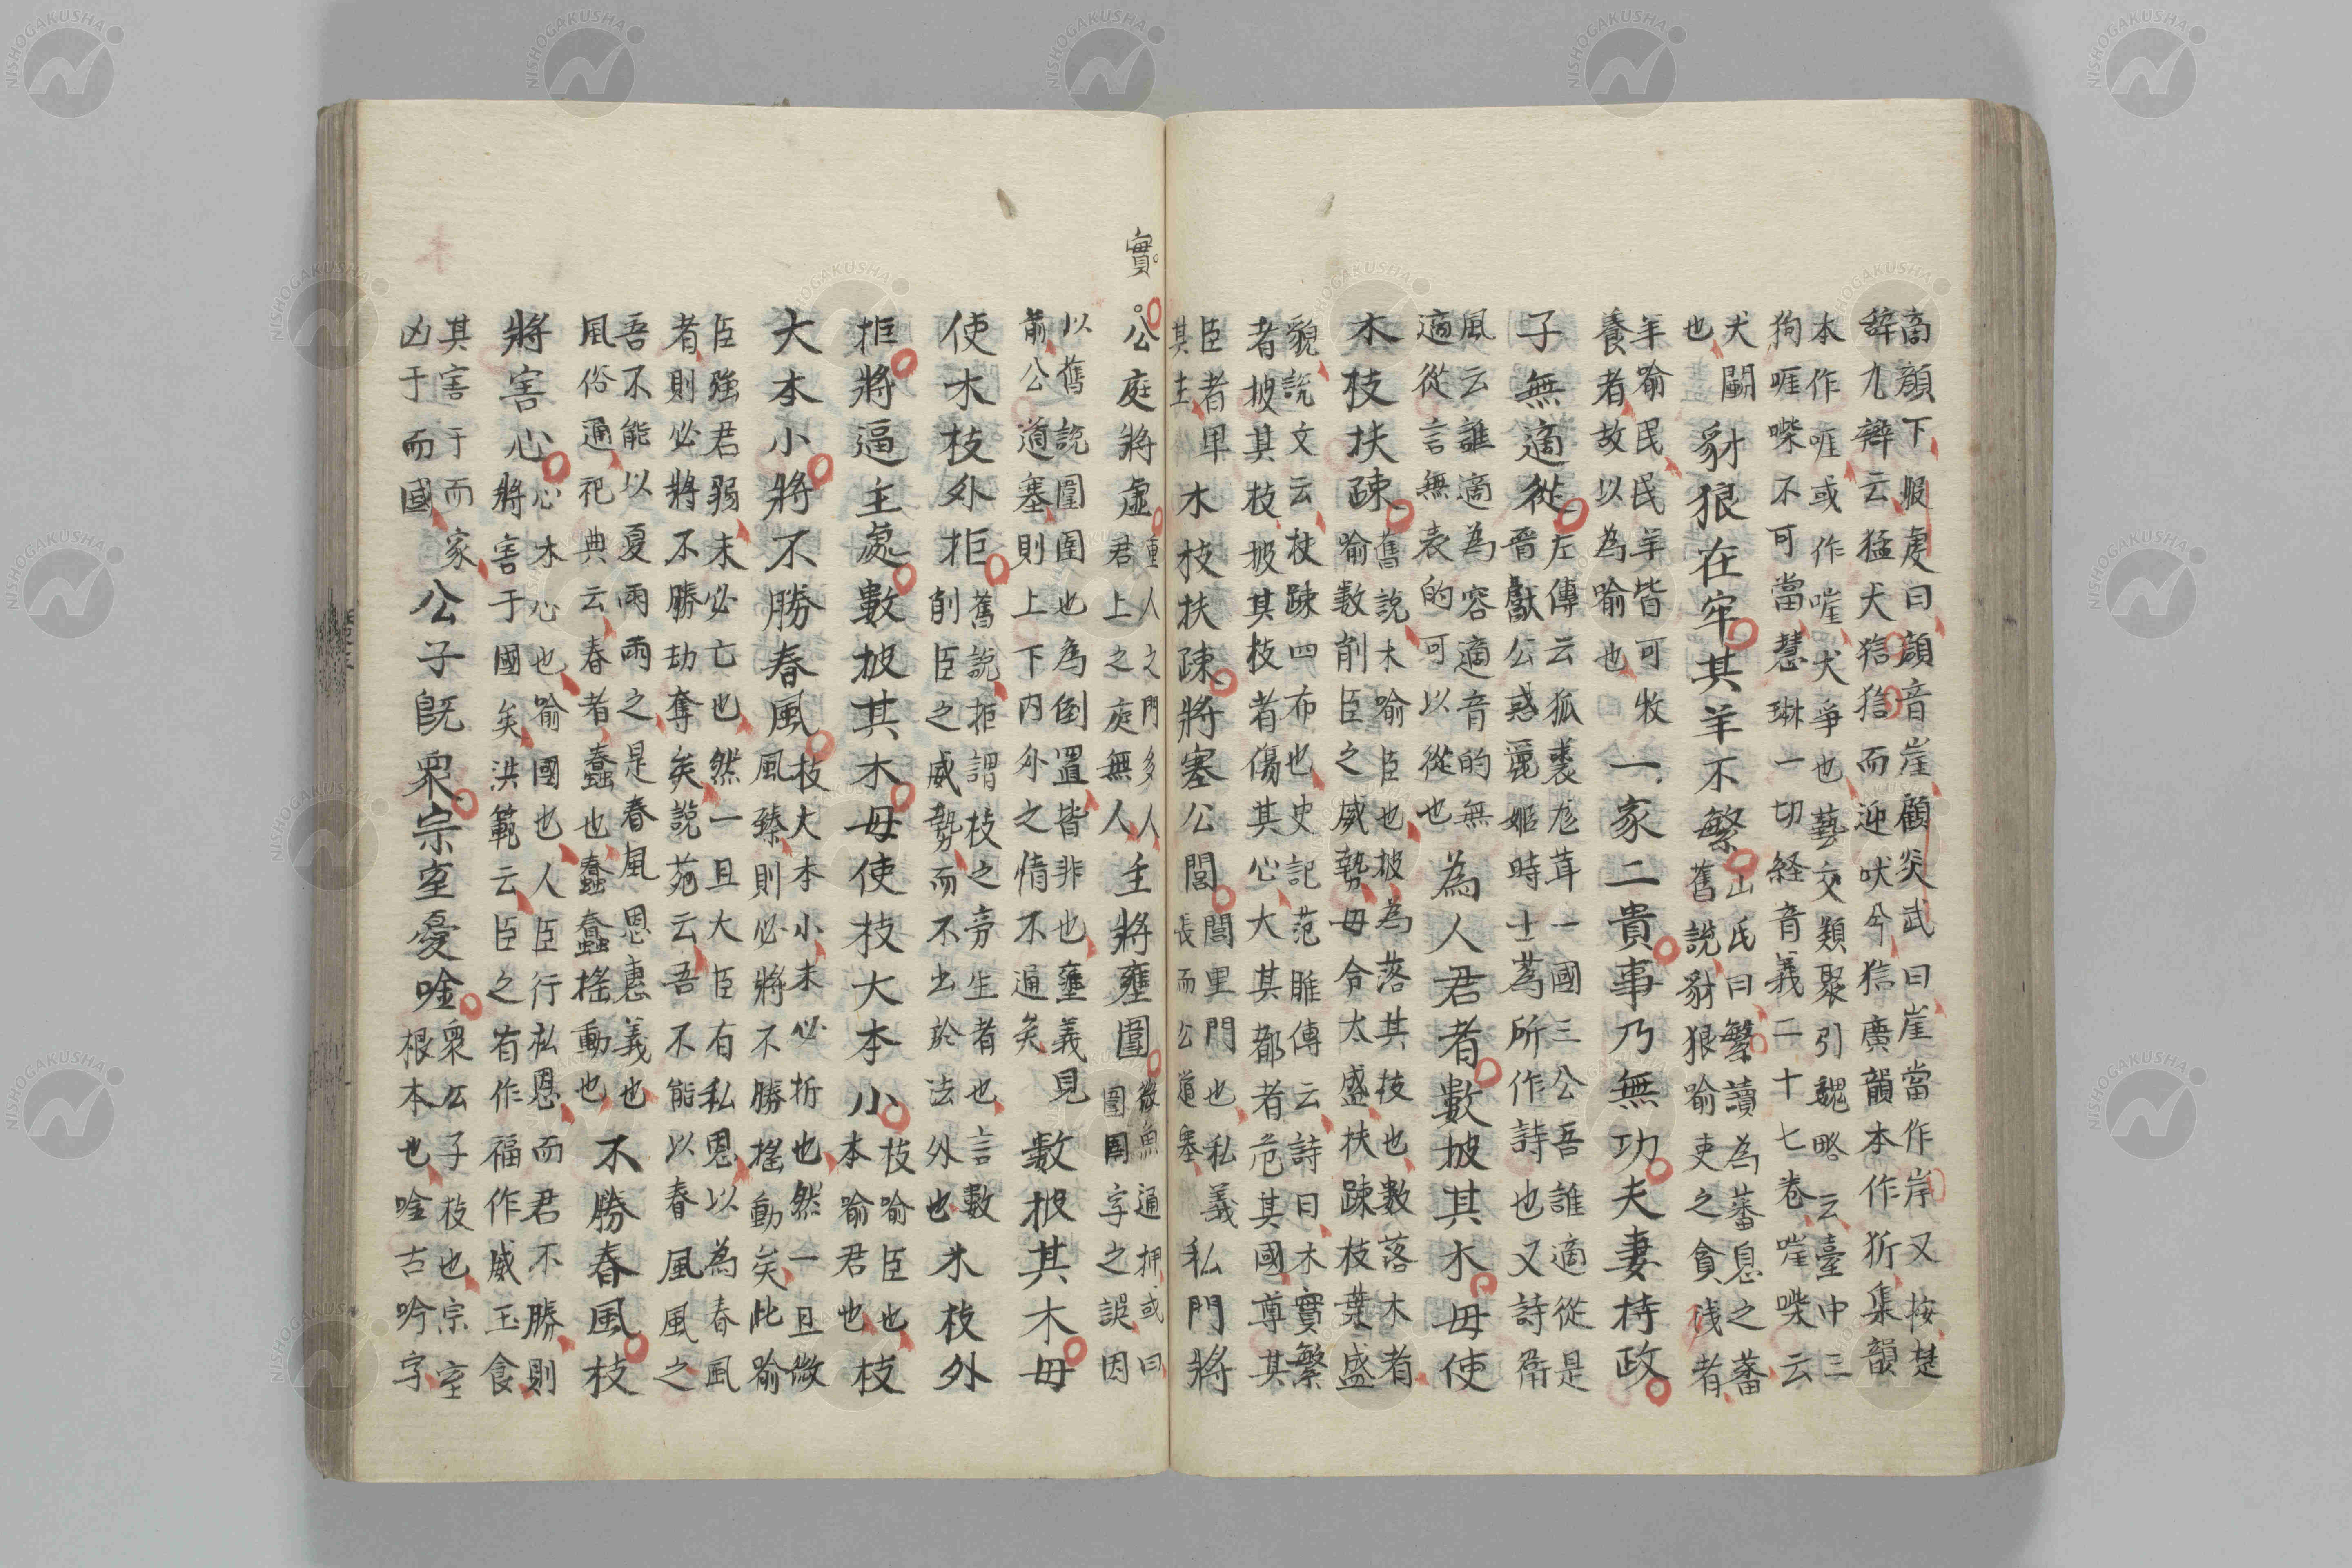 啇顔下服虔曰顔音崖顧炎武曰崖當作岸又按楚
辞九辯云猛犬狺狺而迎吠兮狺廣韻本作㹞集韻
本作啀或作嘊犬爭也藝文類聚引魏略云臺中三
狗啀喍不可當慧琳一切経音義二十七卷嘊喍云
犬鬭
也
豺狼在牢其羊不繁
山氏曰繁讀為蕃息之蕃
舊說豺狼喻吏之貪残者
羊喻民民羊皆可牧
養者故以為喻也
一家二貴事乃無功夫妻持政
子無適從
左傳云狐裘尨茸一國三公吾誰適從是
晉獻公惑驪姬時士蔿所作詩也又詩衛
風云誰適為容適音的無
適從言無表的可以從也
為人君者數披其木毋使
木枝扶疎
舊說木喻臣也披為落其枝也數落木者
喻数削臣之威勢毋令太盛扶踈枝葉盛
貌說文云扶踈四布也史記范雎傳云詩曰木實繁
者披其枝披其枝者傷其心大其都者危其國尊其
臣者卑
其主
木枝扶疎將塞公閭
閭里門也私義
長而公道塞
私門將
實
公庭將虛
重人之門多人
君上之庭無人
主將壅圍
微魚通押或曰
圍圉字之誤因
以舊說圍圉也為倒置皆非也壅義見
前公道塞則上下内外之情不通矣
數披其木毋
使木枝外拒
舊說拒謂枝之旁生者也言數
削臣之威勢而不出於法外也
木枝外
拒將逼主處數披其木毋使枝大本小
枝喻臣也
本喻君也
枝
大本小將不勝春風
枝大本小未必折也然一旦微
風臻則必將不勝搖動矣此喻
臣強君弱未必亡也然一旦大臣有私恩以為春風
者則必將不勝劫奪矣說苑云吾不能以春風風之
吾不能以夏雨雨之是春風恩惠義也
風俗通祀典云春者蠢也蠢蠢搖動也
不勝春風枝
將害心
心木心也喻國也人臣行私恩而君不勝則
將害于國矣洪範云臣之有作福作威玉食
其害于而家
凶于而國
公子既衆宗室憂唫
衆公子枝也宗室
根本也唫古吟字